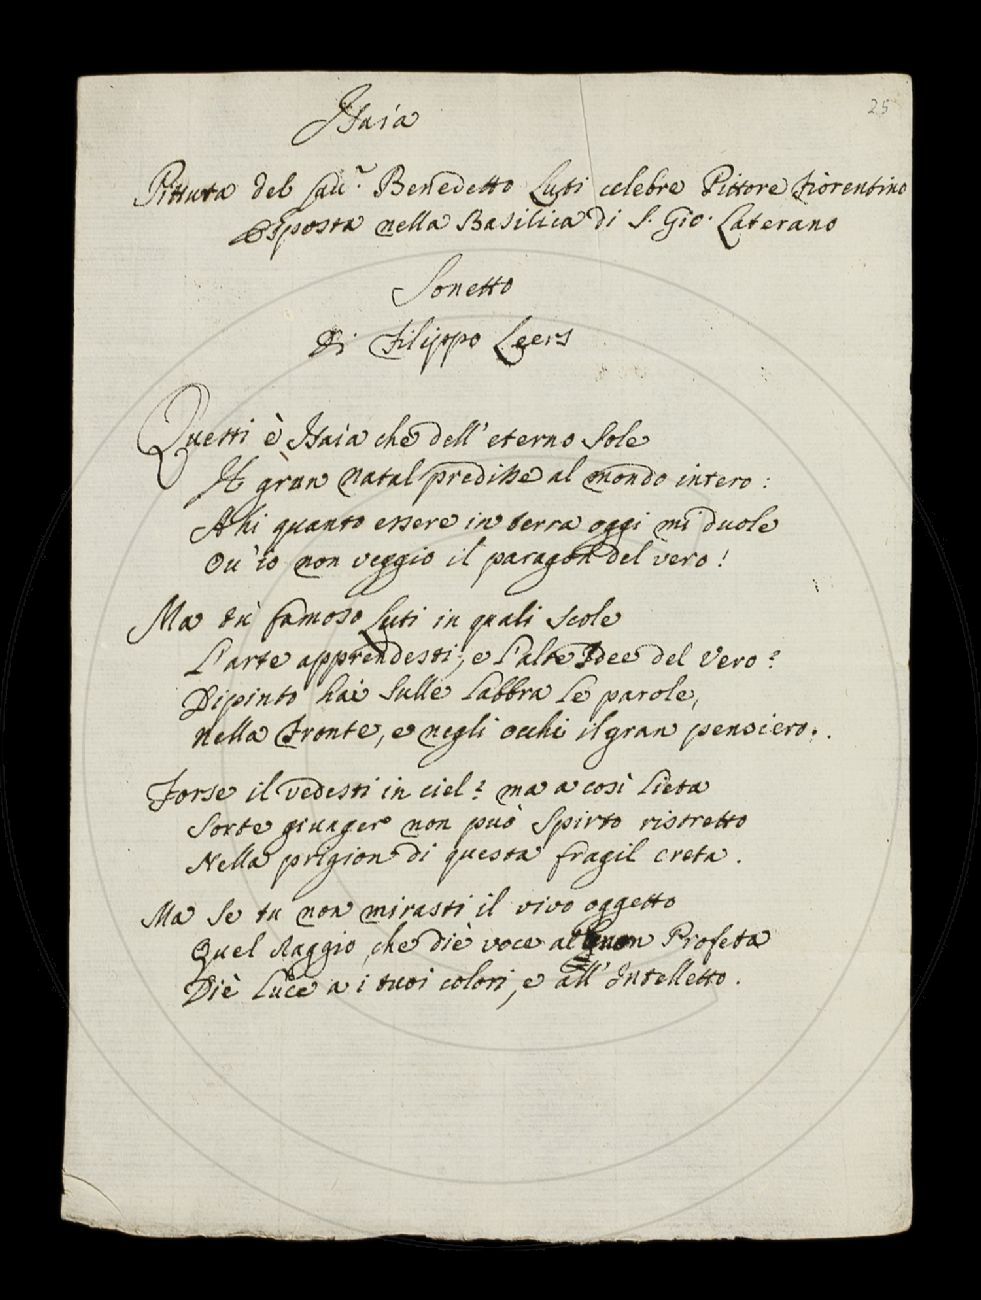 25
Isaia
Pittura del Cau.r Benedetto Luti celebre Pittore Fiorentino
Esposta nella Basilica di S. Gio. Laterano
Sonetto
Di Filippo Leers
Questi è Isaia che dell' eterno Sole
Il gran natal predisse al mondo intero:
Ahi quanto essere in terra oggi mi duole
Ou' io non veggio il paragon del vero!
Ma tù famoso Luti in quali scole
L'arte apprendesti, e l'alte Idee del Vero?
Dipinto hai sulle labbra le parole,
Nella Fronte, e negli occhi il gran pensiero.
Forse il vedesti in ciel? ma a così lieta
Sorte giugner non può Spirto ristretto
Nella prigion di questa fragil creta.
Ma se tu non mirasti il vivo oggetto
Quel Raggio, che diè voce al Profeta
Diè luce a i tuoi colori, e all' Intelletto.